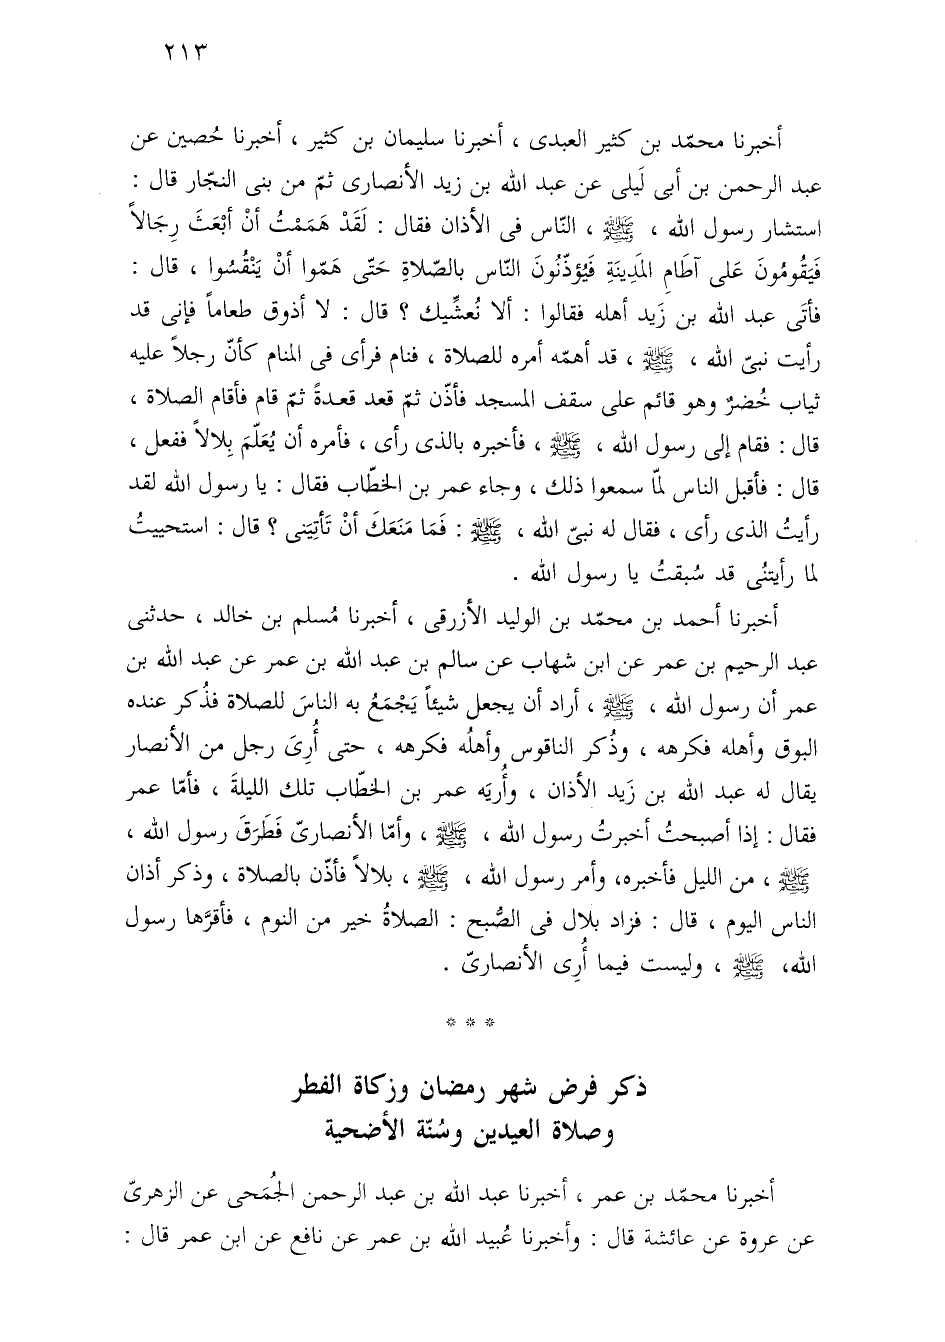 ٢١٣
أخبرنا محمّد بن كثير العبدى ، أخبرنا سليمان بن كثير ، أخبرنا حُصين عن
عبد الرحمن بن أبى لَيلى عن عبد الله بن زيد الأنصارى ثمّ من بنى النجّار قال :
استشار رسول الله ، ﷺ ، النّاس فى الأذان فقال : لَقَدْ هَمَمْتُ أنْ أبْعَثَ رِجَالاً
فَيَقُومُونَ عَلى آطَامِ المَدِينَةِ فَيُؤذّنُونَ النّاس بالصّلاةِ حَتّى هَمّوا أنْ يَنْقُسُوا ، قال :
فأتَى عبد الله بن زَيد أهله فقالوا : ألا نُعشِّيك ؟ قال : لا أذوق طعاماً فإنى قد
رأيت نبىّ الله ، ﷺ ، قد أهمّه أمره للصلاة ، فنام فرأى فى المنام كأنّ رجلاً عليه
ثياب خُضرٌ وهو قائم على سقف المسجد فأذّن ثمّ قعد قعدةً ثمّ قام فأقام الصلاة ،
قال : فقام إلى رسول الله ، ﷺ ، فأخبره بالذى رأى ، فأمره أن يُعَلّمَ بِلالاً ففعل ،
قال : فأقبل الناس لمّا سمعوا ذلك ، وجاء عمر بن الخطّاب فقال : يا رسول الله لقد
رأيتُ الذى رأى ، فقال له نبىّ الله ، ﷺ : فَمَا مَنَعَكَ أنْ تَأتِيَنى ؟ قال : استحييتُ
لما رأيتنُى قد سُبقتُ يا رسول الله .
أخبرنا أحمد بن محمّد بن الوليد الأزرقى ، أخبرنا مُسلم بن خالد ، حدثنى
عبد الرحيم بن عمر عن ابن شهاب عن سالم بن عبد الله بن عمر عن عبد الله بن
عمر أن رسول الله ، ﷺ ، أراد أن يجعل شيئاً يَجْمَعُ به الناسَ للصلاة فذُكر عنده
البوق وأهله فكرهه ، وذُكر الناقوس وأهلُه فكرهه ، حتى أُرِىَ رجل من الأنصار
يقال له عبد الله بن زَيد الأذان ، وأُريَه عمر بن الخطّاب تلك الليلةَ ، فأمّا عمر
فقال : إذا أصبحتُ أخبرتُ رسول الله ، ﷺ ، وأمّا الأنصارىّ فَطَرَقَ رسول الله ،
ﷺ ، من الليل فأخبره، وأمر رسول الله ، ﷺ ، بلالاً فأذّن بالصلاة ، وذكر أذان
الناس اليوم ، قال : فزاد بلال فى الصُّبح : الصلاةُ خير من النوم ، فأقرَّها رسول
الله، ﷺ ، وليست فيما أُرِى الأنصارىّ .
* * *
ذكر فرض شهر رمضان وزكاة الفطر
وصلاة العيدين وسُنّة الأضحية
أخبرنا محمّد بن عمر ، أخبرنا عبد الله بن عبد الرحمن الجُمَحى عن الزهرىّ
عن عروة عن عائشة قال : وأخبرنا عُبيد الله بن عمر عن نافع عن ابن عمر قال :